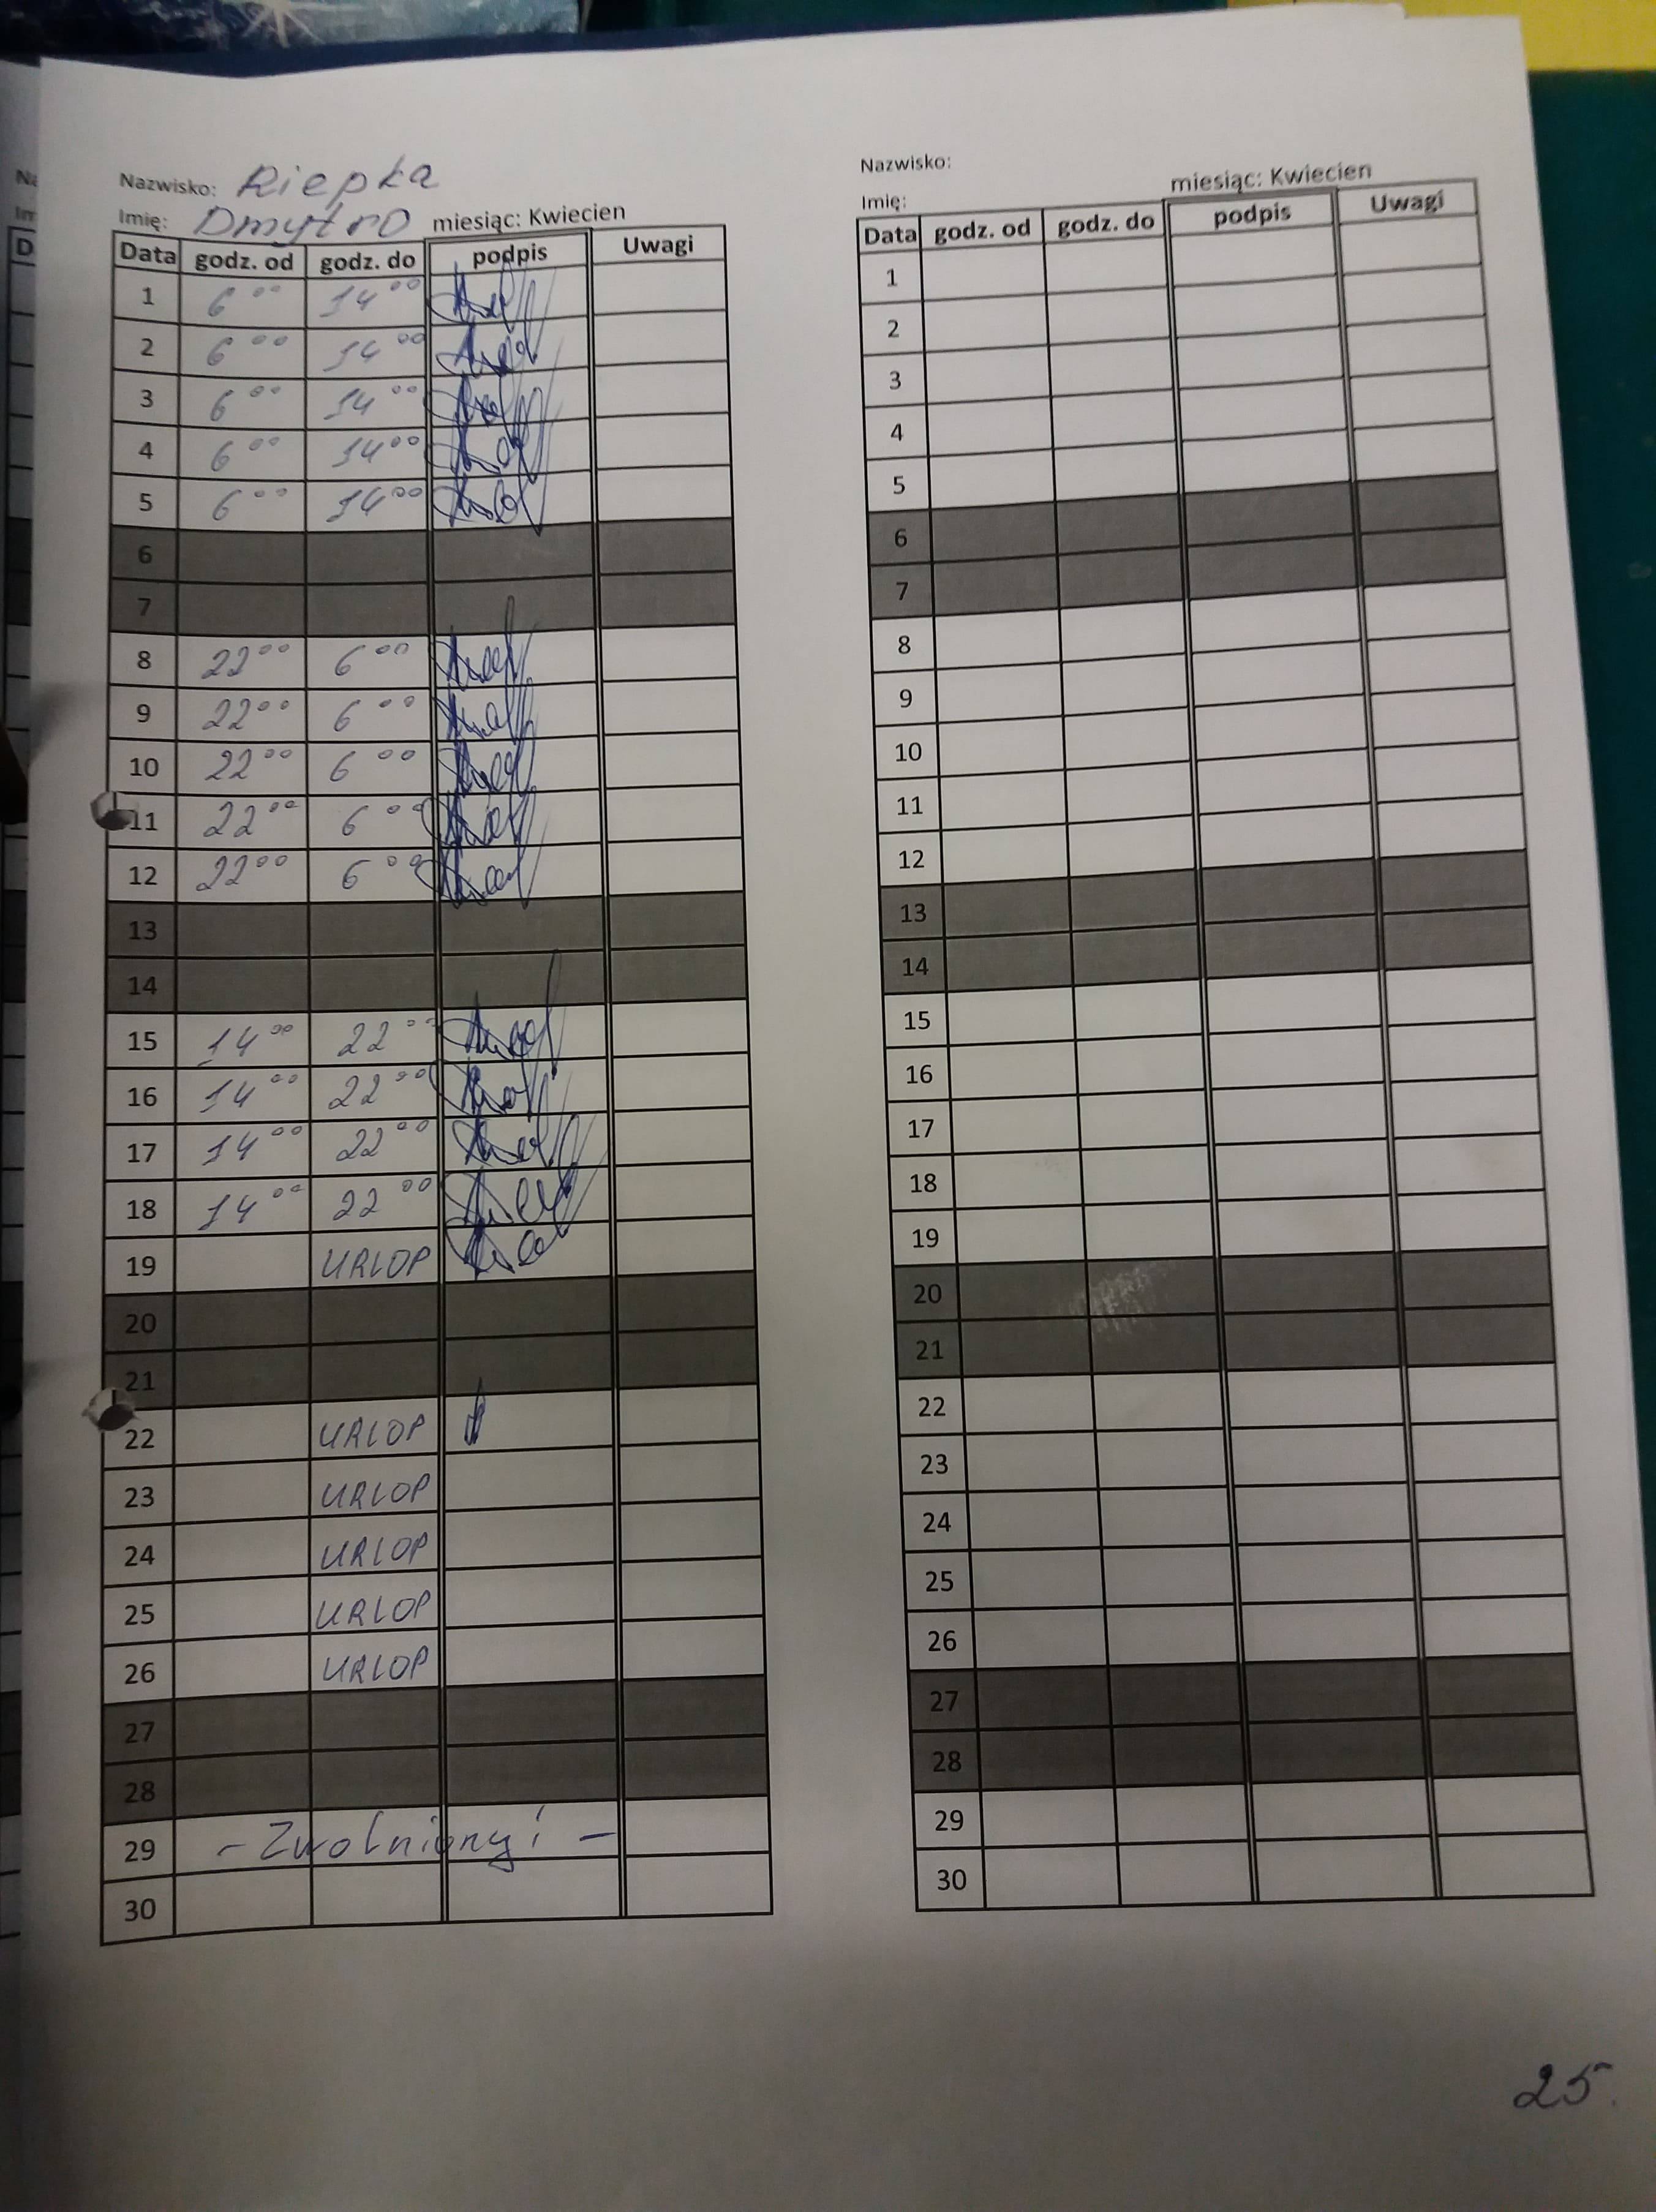 Nazwisko: Riepka
Imię: Dmytro miesiąc: Kwiecien
Data godz. od godz. do podpis Uwagi
1 6 00 14 00
2 6 00 14 00
3 6 00 14 00
4 6 00 14 00
5 6 00 14 00
6
7
8 22 00 6 00
9 22 00 6 00
10 22 00 6 00
11 22 00 6 00
12 22 00 6 00
13
14
15 14 00 22 00
16 14 00 22 00
17 14 00 22 00
18 14 00 22 00
19 URLOP
20
21
22 URLOP
23 URLOP
24 URLOP
25 URLOP
26 URLOP
27
28
29 - Zwolnionyi -
30
Nazwisko:
Imię: miesiąc: Kwiecien
Data godz. od godz. do podpis Uwagi
1
2
3
4
5
6
7
8
9
10
11
12
13
14
15
16
17
18
19
20
21
22
23
24
25
26
27
28
29
30
25.